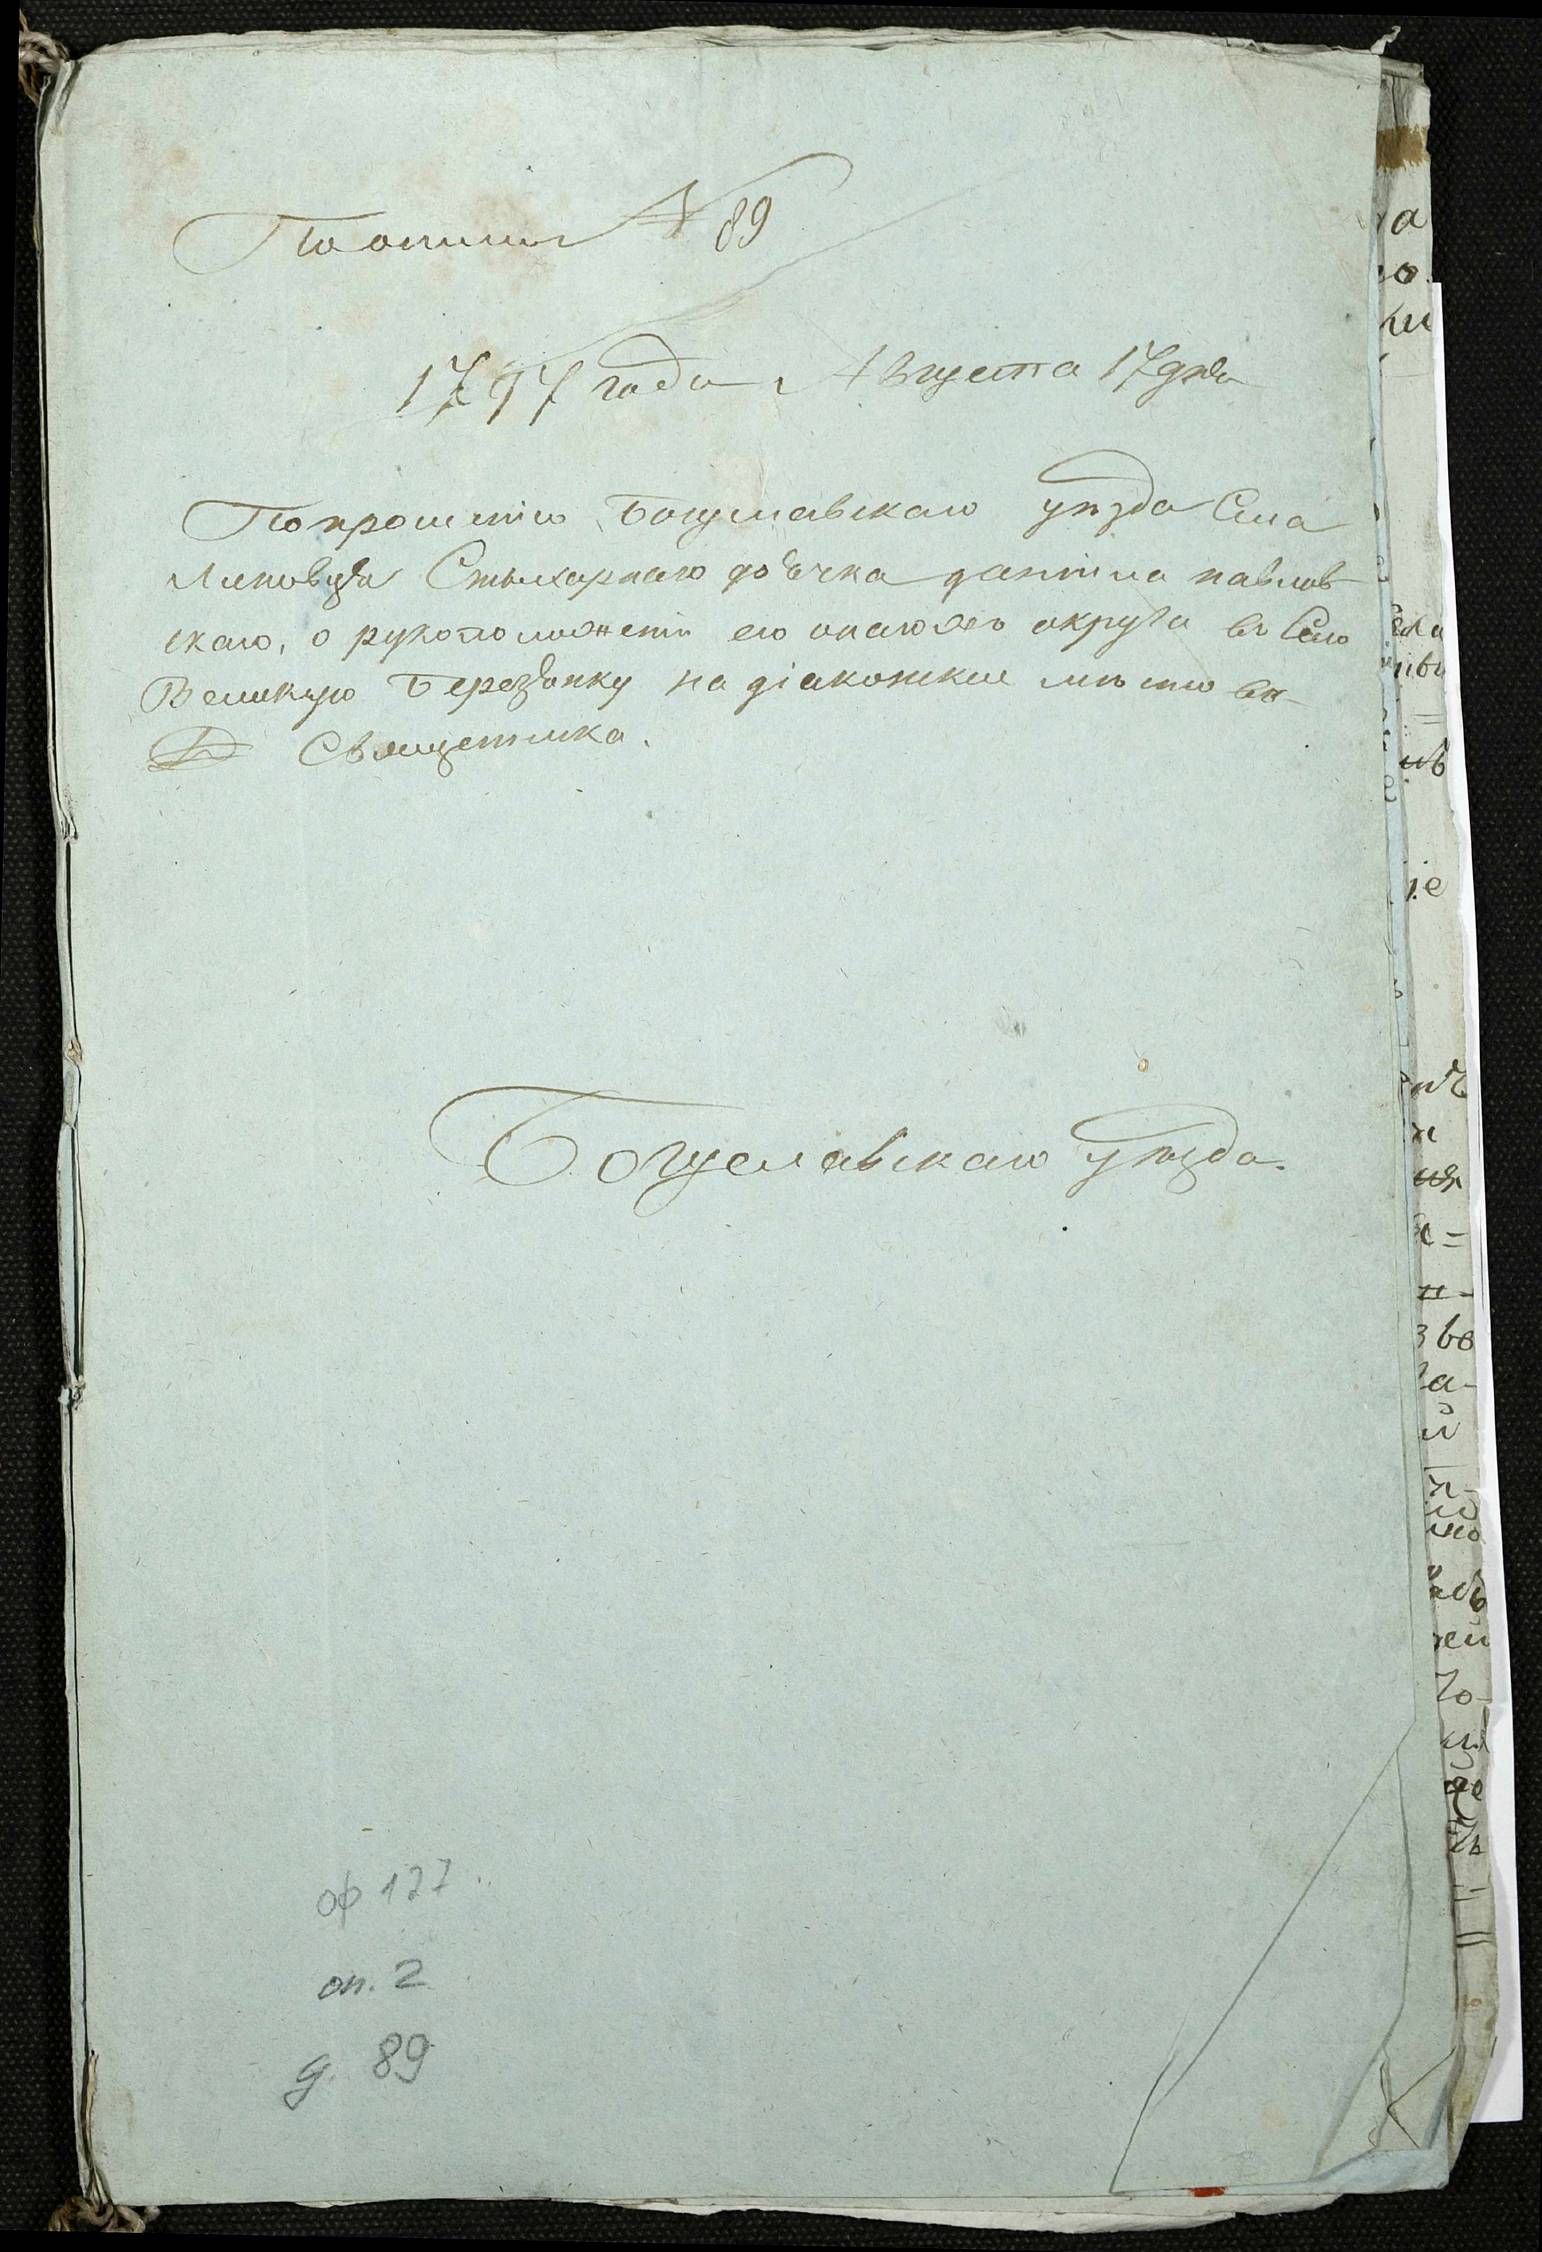 По описи № 89
1797 года Августа 17 дня
По прошенію Богуславскаго уѣзда Села
Липовца Стыхарнаго дьячка Даніила павлов
скаго, о рукоположеніи его онаго же округа въ Село
Великую Березянку на діаконское мѣсто во
Священника.
Богуславскаго уѣзда.
оф 127.
оп. 2
д. 89